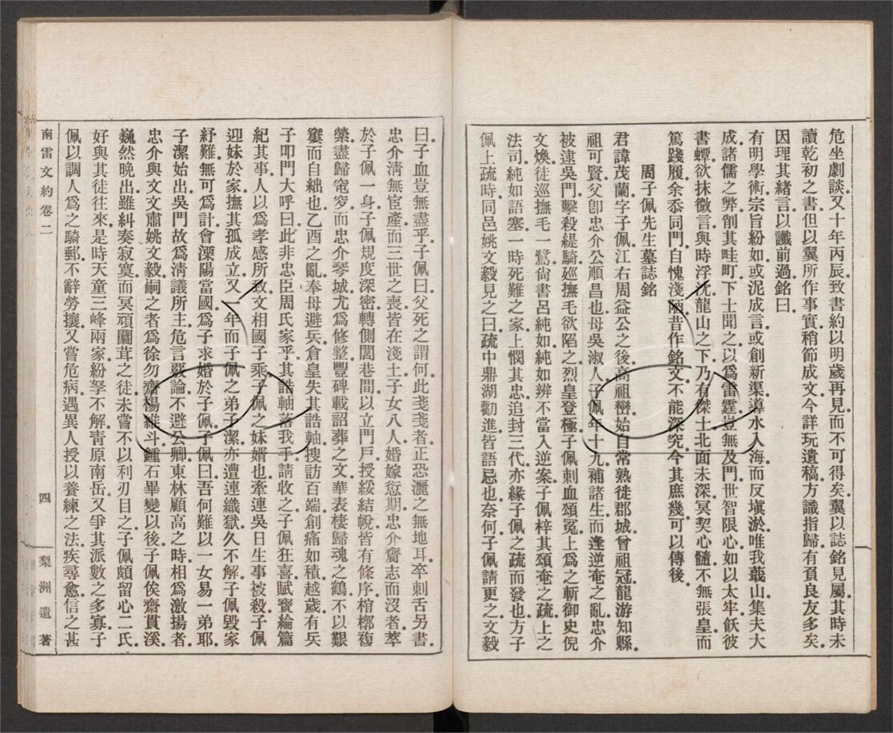 危坐劇談又十年丙辰致書約以明歲再見而不可得矣翼以誌銘見屬其時未
讀乾初之書但以翼所作事實稍節成文今詳玩遺稿方識指歸有負良友多矣
因理其緒言以讖前過銘曰
有明學術宗旨紛如或泥成言或創新渠導水入海而反塡淤唯我蕺山集夫大
成諸儒之弊削其畦町下士聞之以爲雷霆豈無及門世智限心如以太牢飫彼
書蟫欲抹微言與時浮沈龍山之下乃有傑士北面未深冥契心髓不無張皇而
篤踐履余忝同門自愧淺陋昔作銘文不能深究今其庶幾可以傳後
周子佩先生墓誌銘
君諱茂蘭字子佩江右周益公之後高祖巒始自常熟徙郡城曾祖冠龍游知縣
祖可賢父卽忠介公順昌也母吳淑人子佩年十九補諸生而逢逆奄之亂忠介
被逮吳門擊殺緹騎廵撫毛欲陷之烈皇登極子佩刺血頌冤上爲之斬御史倪
文煥徒巡撫毛一鷺尙書呂純如純如辨不當入逆案子佩梓其頌奄之疏上之
法司純如語塞一時死難之家上憫其忠追封三代亦緣子佩之疏而發也方子
佩上疏時同邑姚文毅見之曰疏中鼎湖勸進皆語忌也奈何子佩請更之文毅
曰子血豈無盡乎子佩曰父死之謂何此戔戔者正恐灑之無地耳卒刺舌另書
忠介淸無宦產而三世之喪皆在淺土子女八人婚嫁愆期忠介齎志而沒者萃
於子佩一身子佩規度深密轉側閭巷間以立門戸授綏結帨皆有條序棺槨䅾
縈盡歸窀穸而忠介琴城尤爲修整豐碑載詔葬之文華表棲歸魂之鶴不以艱
窶而自絀也乙酉之亂奉母避兵倉皇失其誥軸搜訪百端創痛如積越歲有兵
子叩門大呼曰此非忠臣周氏家乎其誥軸落我手請收之子佩狂喜賦寶綸篇
紀其事人以爲孝感所致文相國子乘子佩之妹婿也牽連吳日生事被殺子佩
迎妹於家撫其孤成立又一年而子佩之弟子潔亦遭連纎獄久不解子佩毀家
紓難無可爲計會溧陽當國爲子求婚於子佩子佩曰吾何難以一女易一弟耶
子潔始出吳門故爲淸議所主危言覈論不避公卿東林顧高之時相爲激揚者
忠介與文文肅姚文毅嗣之者爲徐勿齋楊維斗鍾石畢變以後子佩俟齋貫溪
巍然晚出雖糾奏寂寞而冥頑闒茸之徒未嘗不以利刃目之子佩頗留心二氏
好與其徒往來是時天童三峰兩家紛拏不解靑原南岳又爭其派數之多寡子
佩以調人爲之驛郵不辭勞攘又嘗危病遇異人授以養練之法疾尋愈信之甚
南雷文約卷二
四
梨洲遺著